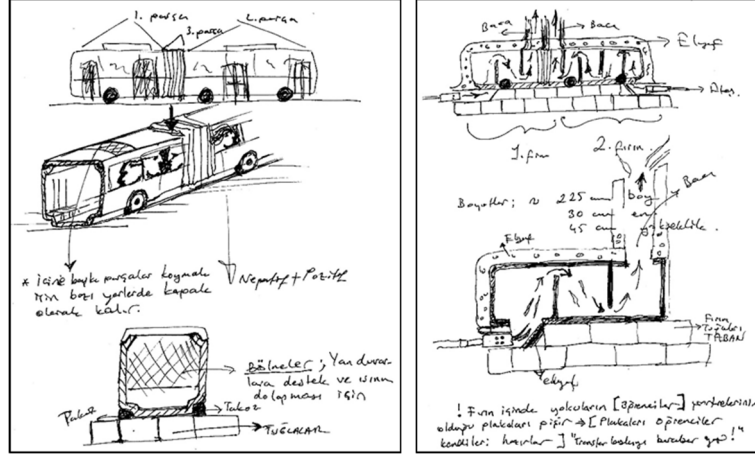 1. parça
2. parça
3. parça
* içine başka parçalar koymak
için bazı yerlerde kapak
olarak kalır.
Negatif + Pozitif
Bölmeler; Yan duvar-
lara destek ve ısının
dolaşması için
Takoz
Takoz
TUĞLALAR
Baca
Baca
Elyaf
Ateş
1. fırın
2. fırın
Baca
Boyutlar; ≈ 225 cm boy
30 cm en
45 cm yükseklik.
Elyaf
Fırın
Tuğlaları
TABAN
elyaf
! Fırın içinde yolcuların [öğrenciler]
olduğu plakaları pişir → [Plakaları öğrenciler
kendileri hazırlar]